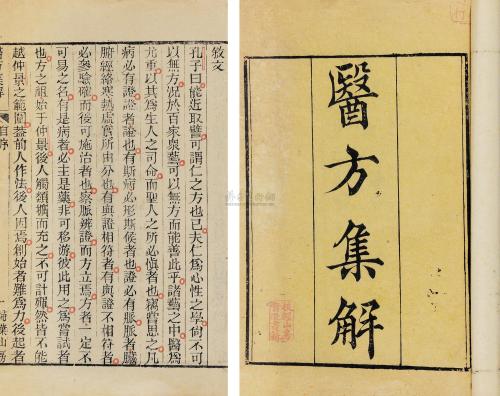 醫方集解
敘文
孔子曰能近取譬可謂仁之方也已夫仁為心性之學尙不可
以無方況於百家衆藝可以無方而能善此乎諸藝之中醫為
尤重以其為生人之司命而聖人之所必愼者也竊嘗思之凡
病必有證證者證也有斯病必形斯候者也證必有脈脈者臟
腑經絡寒熱虛實所由分也有與證相符者有與證不相符者
必參驗確而後可施治者也察脈辨證而方立焉方者一定不
可易之名有是病者必主是藥非可移游彼此用之為嘗試者
也方之祖始于仲景後人觸類擴而充之不可計殫然皆不能
越仲景之範圍蓋前人作法後人因焉創始者難為力後起者
自序